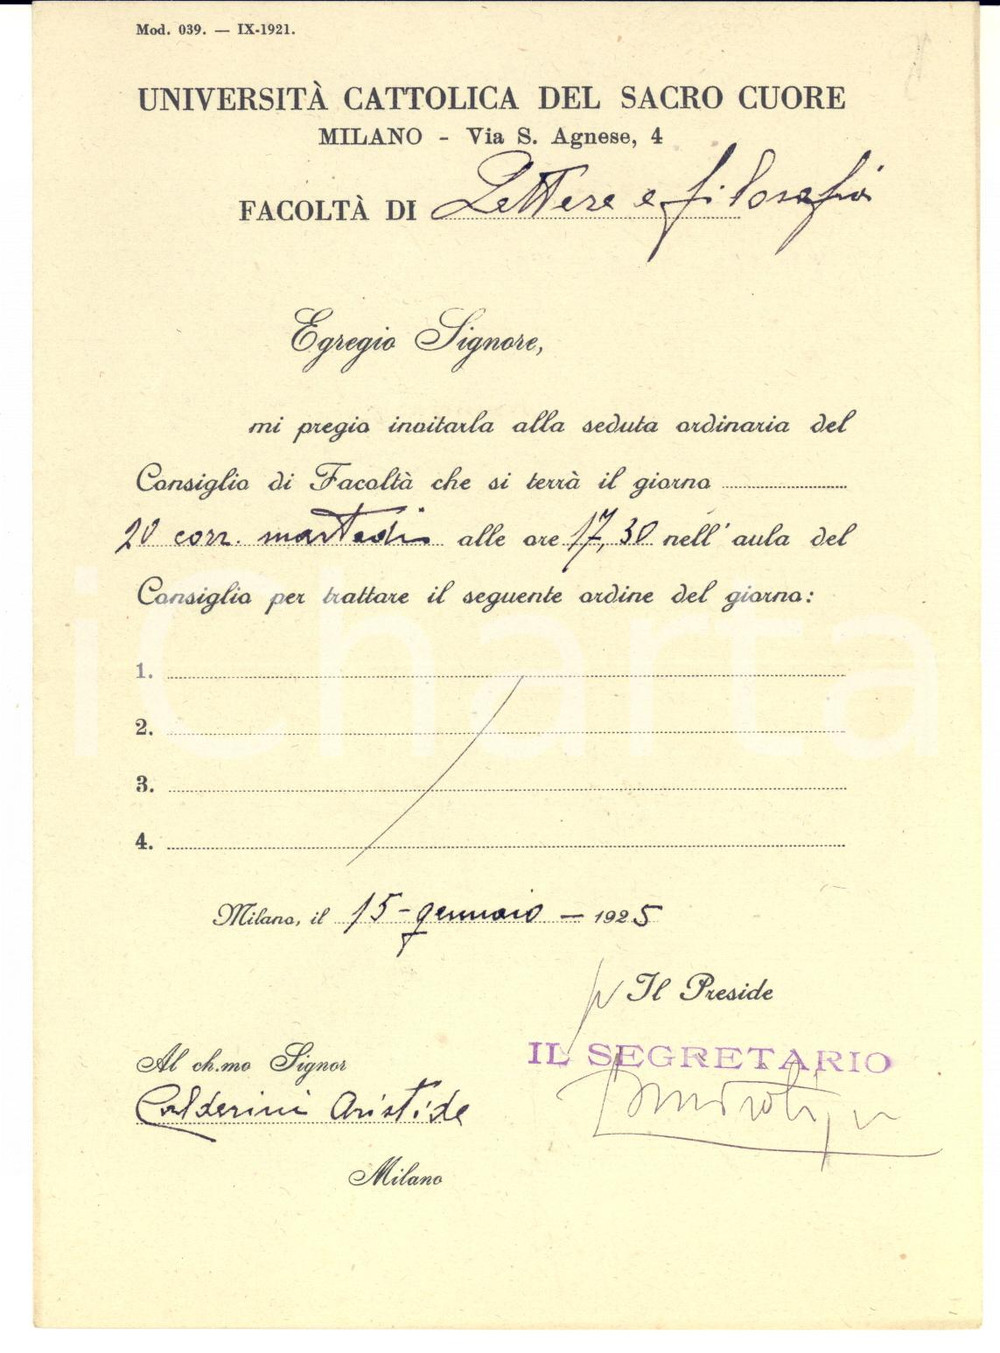 Mod. 039. — IX-1921.
UNIVERSITÀ CATTOLICA DEL SACRO CUORE
MILANO - Via S. Agnese, 4
FACOLTÀ DI Lettere e filosofia
Egregio Signore,
mi pregio invitarla alla seduta ordinaria del
Consiglio di Facoltà che si terrà il giorno
20 corr. martedi alle ore 17,30 nell' aula del
Consiglio per trattare il seguente ordine del giorno:
1.
2.
3.
4.
Milano, il 15 - gennaio - 1925
p Il Preside
IL SEGRETARIO
Al ch.mo Signor
Calderini Aristide
Milano
iCharta